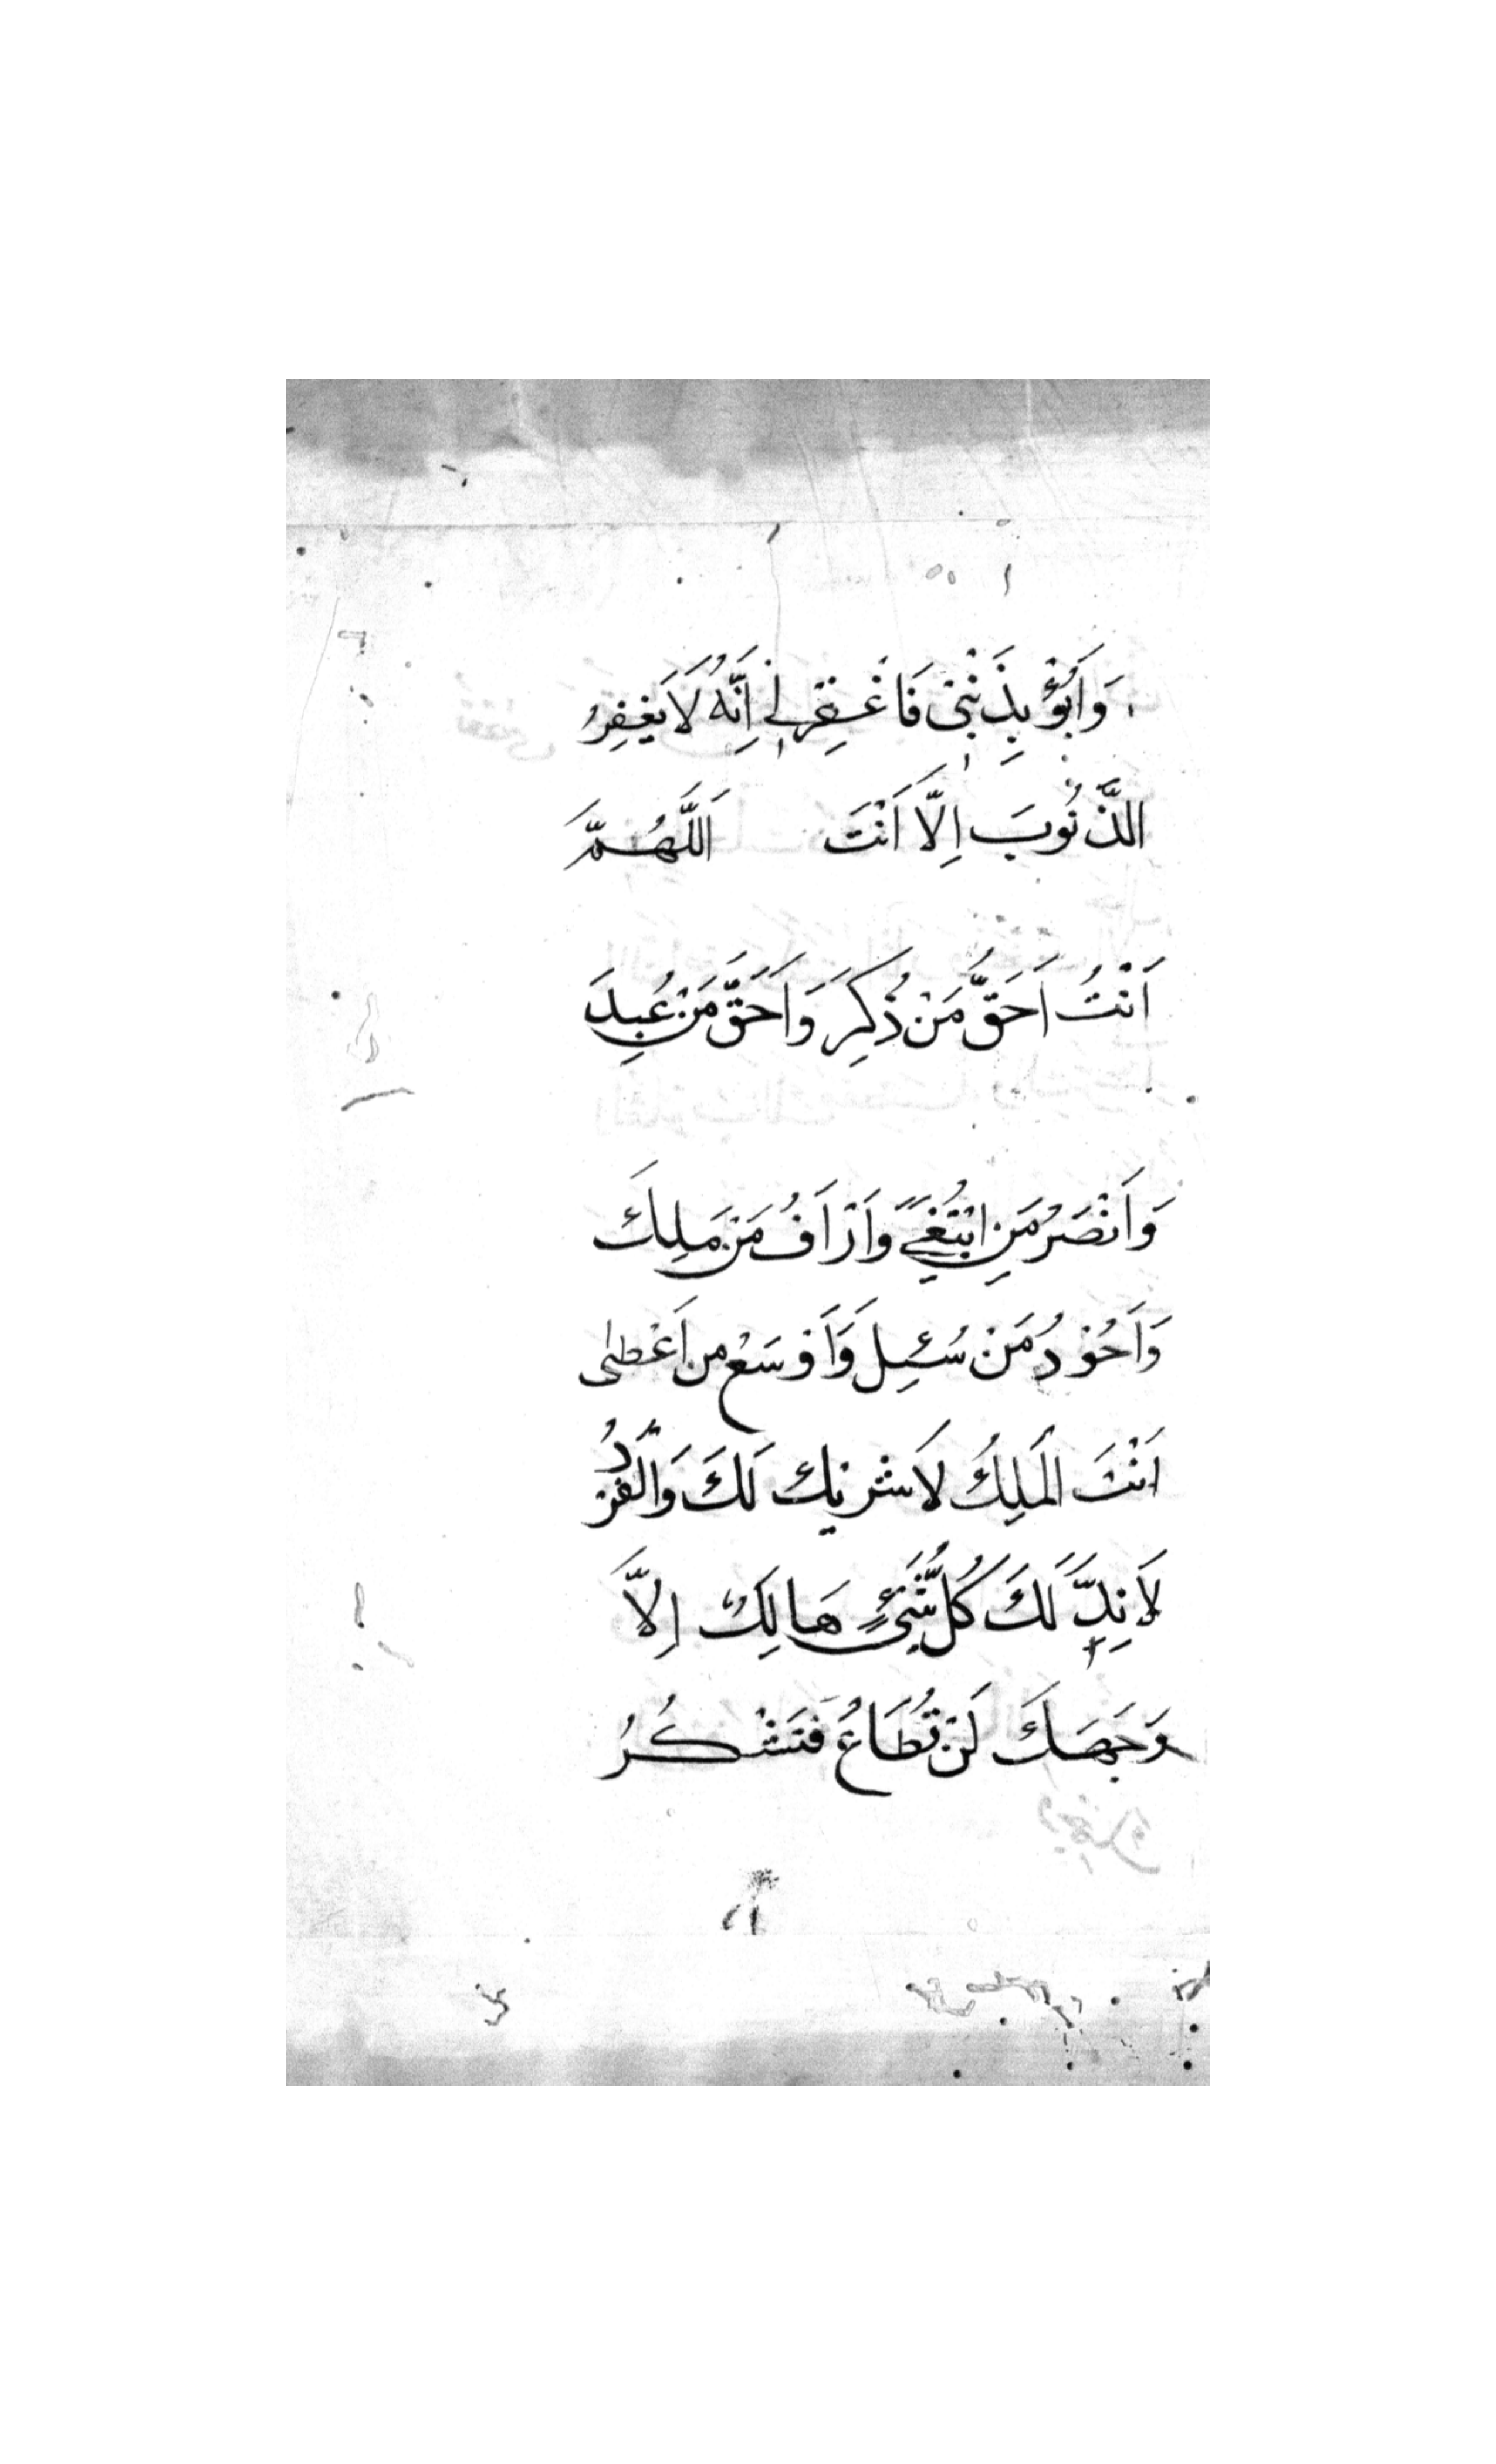 وَاَبُوْءُ بِذَنْبِى فَاغْفِرْلِي اِنَّهُ لَا يَغْفِرُ
الذُّنُوبَ اِلَّا اَنْتَ اَللَّهُمَّ
اَنْتُ اَحَقُّ مَنْ ذُكِرَ وَاَحَقَّ مَنْ عُبِدَ
وَاَنْصَرُ مَنِ ابْتُغِيَ وَاَرْاَفُ مَنْ مَلِكَ
وَاَجُوْدُ مَنْ سُئِلَ وَاَوْسَعْ من اَعْطٰى
اَنْتَ الْمَلِكُ لَا شَرِيْكَ لَكَ وَالْفَرْدُ
لَا نِدَّ لَكَ كُلُّ شَيْءٍ هَالِكٌ اِلَّا
وَجَهَكَ لَنْ تُطَاعُ فَتَشْكُرُ